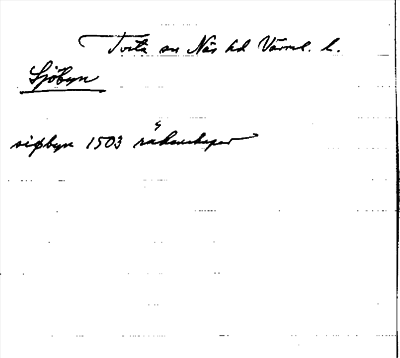 Torta sn Näs hd Värml. l.
Sjöbyn
siøbyn 1503 räkenskaper